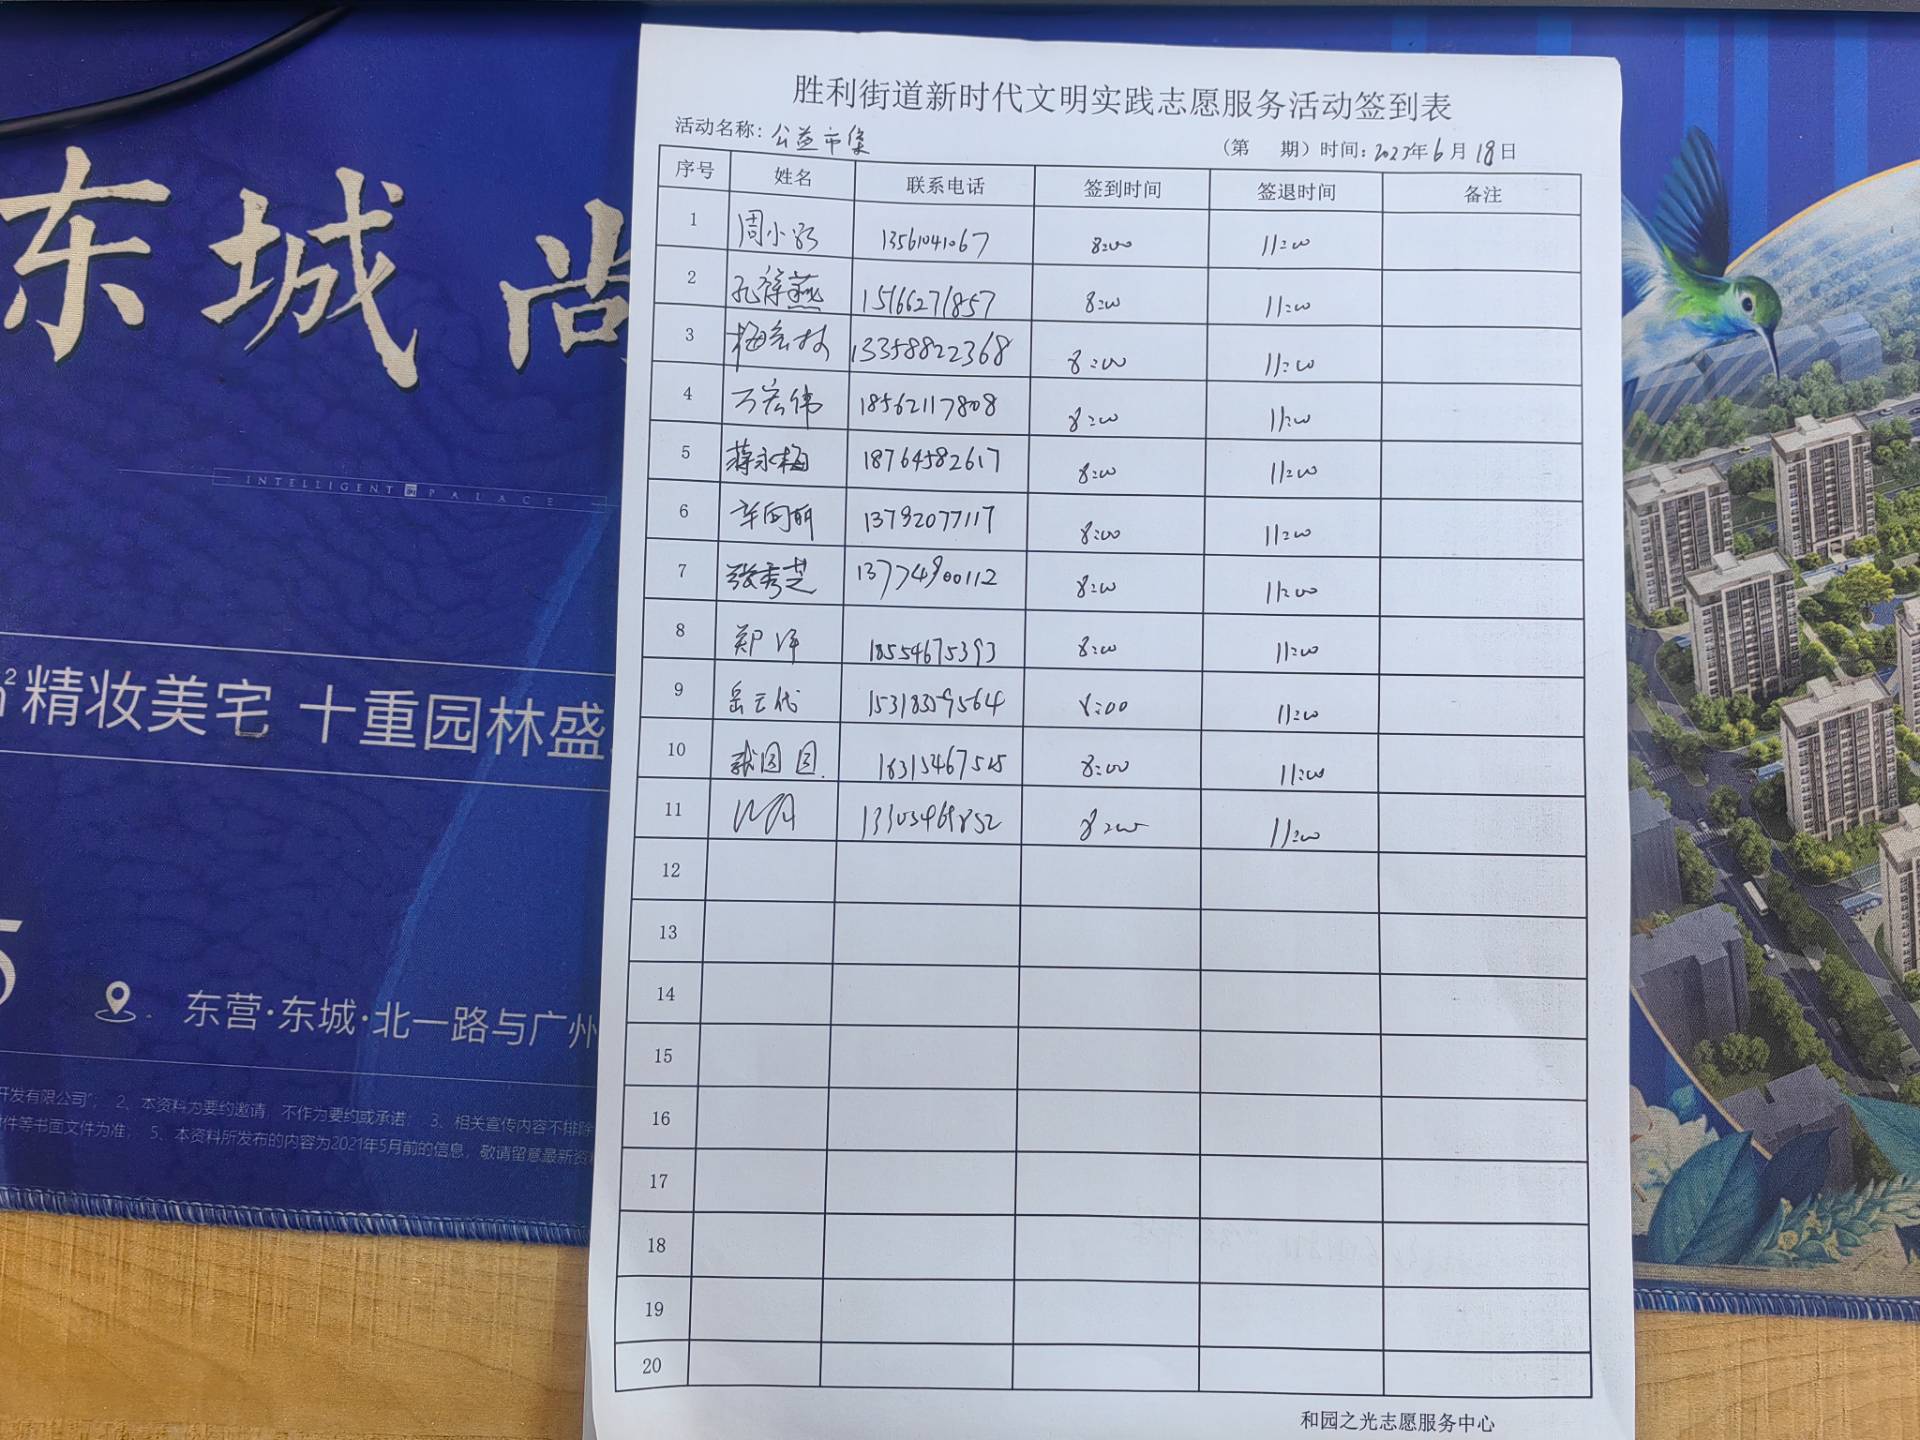 胜利街道新时代文明实践志愿服务活动签到表
活动名称：公益市集 （第 期）时间：2023年6月18日
序号 姓名 联系电话 签到时间 签退时间 备注
1 周小 13561041067 8:00 11:00
2 孔祥燕 15166271857 8:00 11:00
3 梅宏林 13358822368 8:00 11:00
4 万宏伟 18562117808 8:00 11:00
5 蒋永梅 18764582617 8:00 11:00
6 13792077117 8:00 11:00
7 张秀芝 13774900112 8:00 11:00
8 郑 18554675393 8:00 11:00
9 岳云代 15318359564 8:00 11:00
10 圆圆 8:00 11:00
11 8:00 11:00
12
13
14
15
16
17
18
19
20
和园之光志愿服务中心
东城尚
INTELLIGENT PALACE
精妆美宅 十重园林盛
5
东营·东城·北一路与广州
开发有限公司"； 2、本资料为要约邀请，不作为要约或承诺； 3、相关宣传内容不排除
件等书面文件为准； 5、本资料所发布的内容为2021年5月前的信息，敬请留意最新资